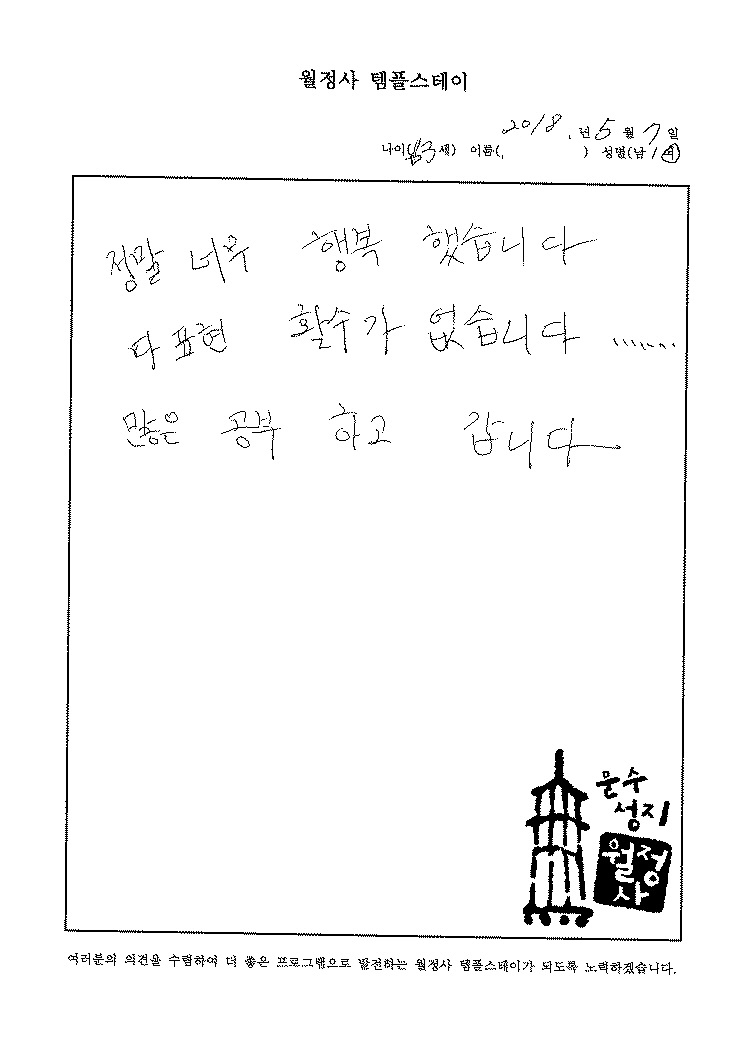 월정사 템플스테이
2018. 년 5 월 7 일
나이( 3 세) 이름(. ) 성별(남/여)
정말 너무 행복 했습니다
다 표현 할수가 없습니다 .......
많은 공부 하고 갑니다
문수
성지
월정
사
여러분의 의견을 수렴하여 더 좋은 프로그램으로 발전하는 월정사 템플스테이가 되도록 노력하겠습니다.